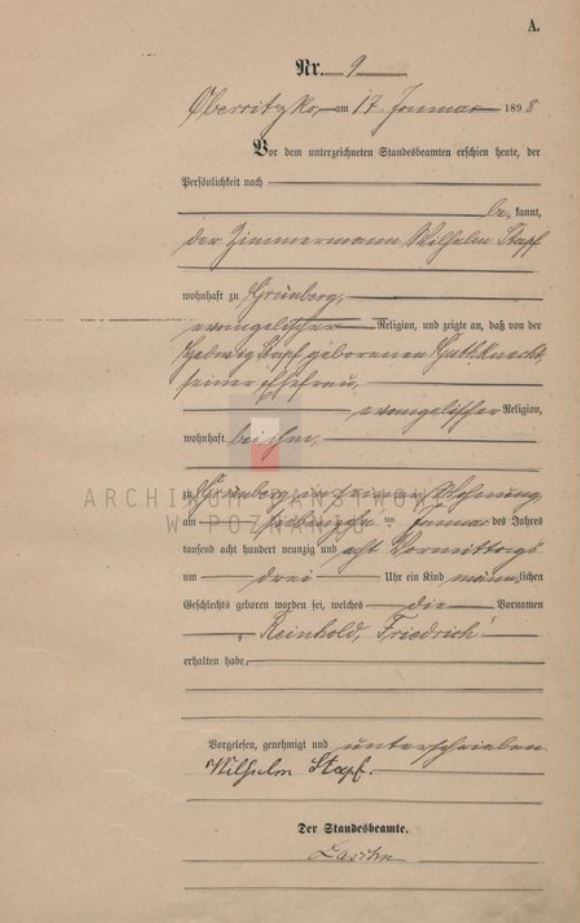 A.
Nr. 9
Obersitzko, am 17 Januar 1898
Vor dem unterzeichneten Standesbeamten erschien heute, der
Persönlichkeit nach
be kannt,
der Zimmermann Wilhelm Stapf
wohnhaft zu Grünberg,
evangelischer Religion, und zeigte an, daß von der
Hedwig Stapf geborenen Guthknecht,
seiner Ehefrau,
evangelischer Religion,
wohnhaft bei ihm,
zu Grünberg in seiner Wohnung
am siebenzehn ten Januar des Jahres
tausend acht hundert neunzig und acht Vormittags
um drei Uhr ein Kind männlichen
Geschlechts geboren worden sei, welches die Vornamen
„Reinhold, Friedrich“
erhalten habe.
Vorgelesen, genehmigt und unterschrieben.
Wilhelm Stapf.
Der Standesbeamte.
ARCHIWUM PAŃSTWOWE
W POZNANIU